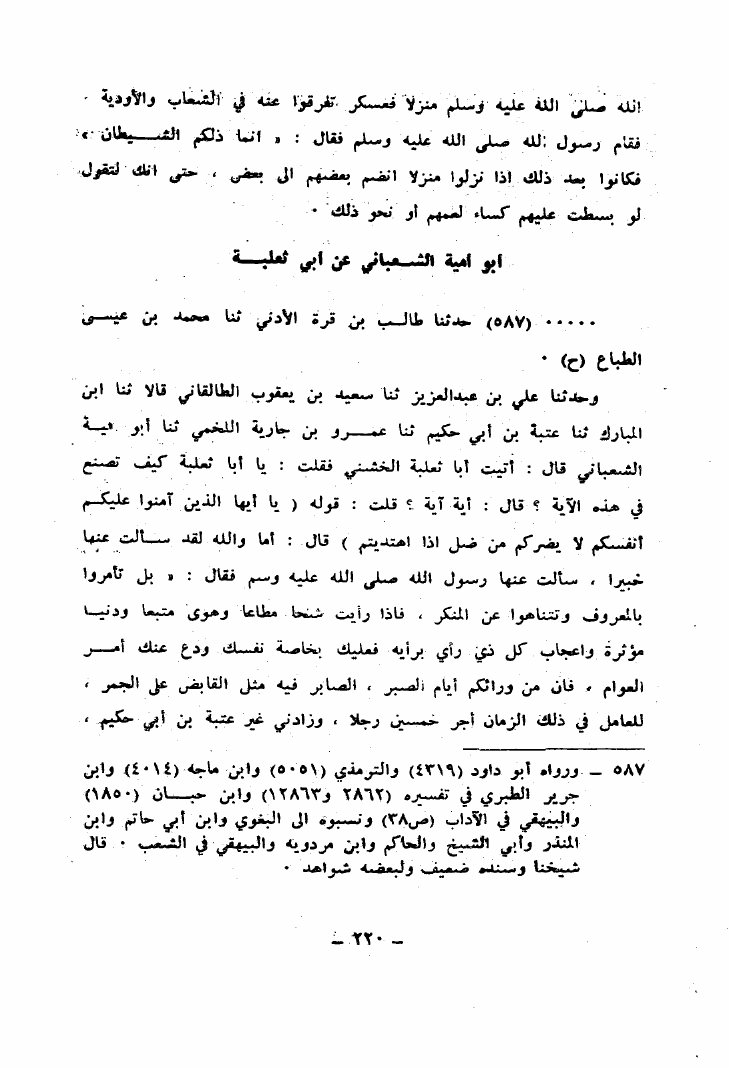 الله صلى الله عليه وسلم منزلا فعسكر تفرقوا عنه في الشعاب والأودية ٠
فقام رسول الله صلى الله عليه وسلم فقال : « انما ذلكم الشـــيطان »
فكانوا بعد ذلك اذا نزلوا منزلا انضم بعضهم الى بعض ، حتى انك لتقول
لو بسطت عليهم كساء لعمهم أو نحو ذلك ٠
ابو امية الشـعباني عن ابي ثعلبـــة
٠٠٠٠٠ (٥٨٧) حدثنا طالـب بن قرة الأدني ثنا محمد بن عيسـى
الطباع (ح) ٠
وحدثنا علي بن عبدالعزيز ثنا سعيد بن يعقوب الطالقاني قالا ثنا ابن
المبارك ثنا عتبة بن أبي حكيم ثنا عمـرو بن جارية اللخمي ثنا أبو ميـة
الشعباني قال : أتيت أبا ثعلبة الخشني فقلت : يا أبا ثعلبة كيف تصنع
في هذه الآية ؟ قال : أية آية ؟ قلت : قوله ( يا أيها الذين آمنوا عليكـم
أنفسكم لا يضركم من ضل اذا اهتديتم ) قال : أما والله لقد سـألت عنها
خبيرا ، سألت عنها رسول الله صلى الله عليه وسم فقال : « بل تأمروا
بالمعروف وتتناهوا عن المنكر ، فاذا رأيت شحا مطاعا وهوى متبعا ودنيـا
مؤثرة واعجاب كل ذي رأي برأيه فعليك بخاصة نفسـك ودع عنك أمـــر
العوام ، فان من ورائكم أيام الصبر ، الصابر فيه مثل القابض على الجمر ،
للعامل في ذلك الزمان أجر خمسـين رجلا ، وزادني غير عتبة بن أبي حكيم ،
٥٨٧ ــ ورواه أبو داود (٤٣١٩) والترمذي (٥٠٥١) وابن ماجه (٤٠١٤) وابن
جرير الطبري في تفسيره (٢٨٦٢ و١٢٨٦٣) وابن حبـــان (١٨٥٠)
والبيهقي في الآداب (ص٣٨) ونسبوه الى البغوي وابن أبي حاتم وابن
المنذر وأبي الشيخ والحاكم وابن مردويه والبيهقي في الشعب ٠ قال
شيخنا وسنده ضعيف ولبعضه شواهد ٠
ــ ٢٢٠ ــ